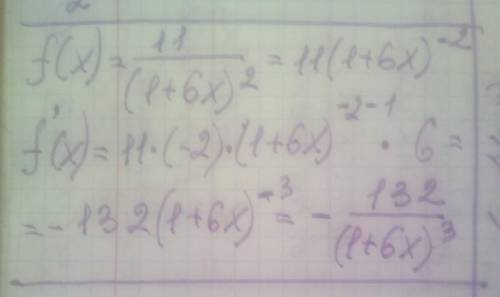 2
f(x) = 11/(1+6x)^2 = 11(1+6x)^-2
f'(x) = 11·(-2)·(1+6x)^-2-1 · 6 =
= - 132(1+6x)^-3 = - 132/(1+6x)^3